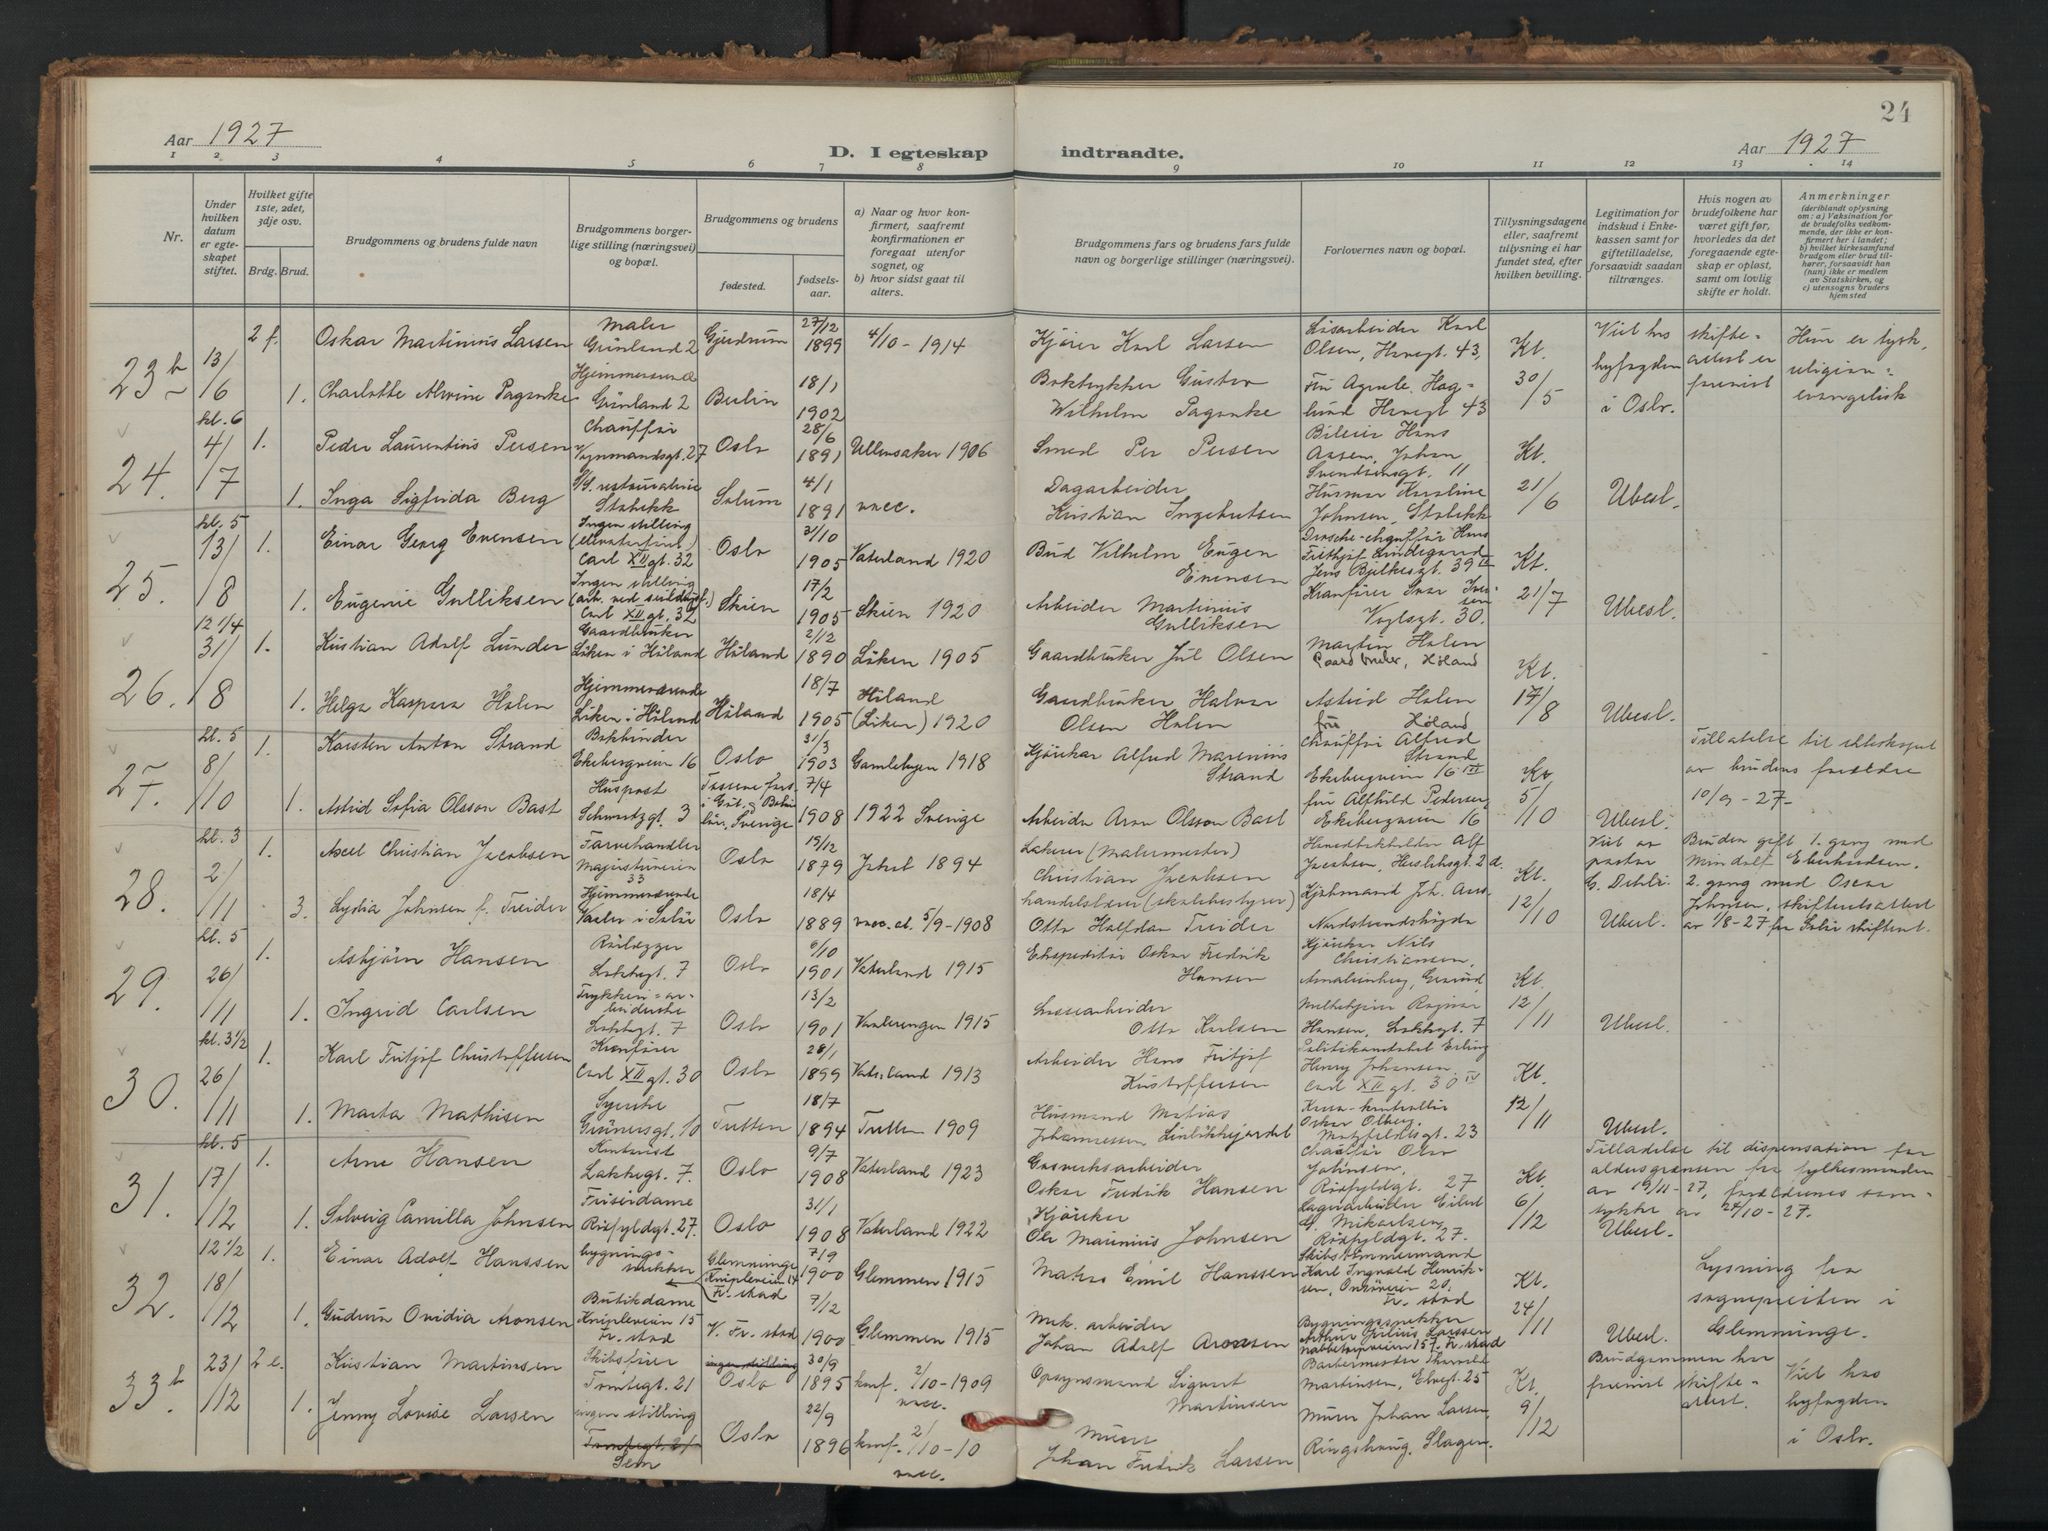 24
Aar 1927
D. I egteskap indtraadte.
Aar 1927
1 2 3 4 5 6 7 8 9 10 11 12 13 14
Nr.
Under hvilken datum er egteskapet stiftet.
Hvilket gifte 1ste, 2det, 3dje osv.
Brdg. Brud.
Brudgommens og brudens fulde navn
Brudgommens borgerlige stilling (næringsvei) og bopæl.
Brudgommens og brudens
fødested.
fødselsaar.
a) Naar og hvor konfirmert, saafremt konfirmationen er foregaat utenfor sognet, og
b) hvor sidst gaat til alters.
Brudgommens fars og brudens fars fulde navn og borgerlige stillinger (næringsvei).
Forlovernes navn og bopæl.
Tillysningsdagene eller, saafremt tillysning ei har fundet sted, efter hvilken bevilling.
Legitimation for indskud i Enkekassen samt for giftetilladelse, forsaavidt saadan tiltrænges.
Hvis nogen av brudefolkene har været gift før, hvorledes da det foregaaende egteskap er opløst, samt om lovlig skifte er holdt.
Anmerkninger
(deriblandt oplysning om: a) Vaksination for de brudefolks vedkommende, der ikke er konfirmert her i landet; b) hvilket kirkesamfund brudgom eller brud tilhører, forsaavidt han (hun) ikke er medlem av Statskirken, og c) utensogns bruders hjemsted
23b 13/6 2 f. Oskar Martinius Larsen Maler Grønland 2 Gjerdrum 27/12 1899 4/10 - 1914 Kjører Karl Larsen Løsarbeider Karl Olsen, Havegt. 43, Kl. 30/5 Viet hos byfogden i Oslo. skifteattest er fremvist Hun er tysk, religion: evangelisk
1. Charlotte Alwine Pagenke Hjemmeværende Grønland 2 Berlin 18/1 1902 Boktrykker Gustav Wilhelm Pagenke Fru Agnete Haglund Havegt 43
kl. 6
24. 4/7 1. Peder Laurentius Persen Chauffør Vognmandsgt. 27 Oslo 28/6 1891 Ullensaker 1906 Smed Per Persen Bileier Hans Aasen, Johan Svendsensgt. 11 Kl. 21/6 Ubesl.
1. Inga Sigfrida Berg Stabekk Solum 4/1 1891 vacc. Dagarbeider Kristian Ingebretsen Husmor Karoline Johnsen, Stabekk
kl. 5
25. 13/8 1. Einar Georg Evensen Ingen stilling Carl XII gt. 32 Oslo 31/10 1905 Vaterland 1920 Bud Vilhelm Eugen Evensen Drosche-chauffør Hans Frithjof Lindegaard Jens Bjelkesgt. 39 III Kl. 21/7 Ubesl.
1. Eugenie Gulliksen Ingen stilling Carl XII gt. 32 Skien 17/2 1905 Skien 1920 Arbeider Martinius Gulliksen Kranfører Ivar Iversen Vogtsgt. 30.
12 1/4
26. 31/8 1. Kristian Adolf Lunder Gaardbruker Løken i Høland Høland 2/12 1890 Løken 1905 Gaardbruker Jul Olsen Martin Holen Gaardbruker, Høland Kl. 17/8 Ubesl.
1. Helga Kaspara Holen Hjemmeværende Løken i Høland Høland 18/7 1905 Høland (Løken) 1920 Gaardbruker Halvor Olsen Holen Astrid Holen fru Høland
kl. 5
27. 8/10 1. Karsten Anton Strand Bokbinder Ekebergveien 16 Oslo 31/3 1903 Gamlebyen 1918 Kjørekar Alfred Marenius Strand Chauffør Alfred Strand Ekebergveien 16 III Kl. 5/10 Ubesl. Tillatelse til ekteskapet av brudens forældre 10/9 - 27 -
1. Astrid Sofia Olsson Bast Huspost Schwartzgt. 3 Sverige 7/4 1908 1922 Sverige Arbeider Aron Olsson Bast fru Alfhild Pedersen, Ekebergveien 16
kl. 3
28. 2/11 1. Axel Christian Jacobsen Farvehandler 33 Oslo 19/12 1879 Jakob 1894 Lakerer (Malermester) Christian Jacobsen Alf Jacobsen, 2 d. Kl. 12/10 Viet av pastor Ubesl. Bruden gift 1. gang med Mindolf Eberhardsen. 2. gang med Oscar Johnsen, skifteretsattest av 1/8 - 27 fra Solør skifteret.
3. Lydia Johnsen f. Treider Hjemmeværende i Solør Oslo 18/4 1889 vacc. at. 5/9 - 1908 handelslærer (skolebestyrer) Otto Halfdan Treider Nordstrandshøgda
kl. 5
29. 26/11 1. Asbjørn Hansen Rørlægger Lakkegt. 7 Oslo 6/10 1901 Vaterland 1915 Ekspeditør Oskar Fredrik Hansen Kjørekar Nils Christiansen, Kl. 12/11 Ubesl.
1. Ingrid Carlsen Trykkeri-arbeiderske Lakkegt. 7 Oslo 13/2 1901 Vaalerengen 1915 Lossearbeider Otto Karlsen Melkekjører Ragnar Hansen, Lakkegt. 7
kl. 3 1/2
30. 26/11 1. Karl Fritjof Christoffersen Kranfører Carl XII gt. 30 Oslo 28/1 1899 Vaterland 1913 Arbeider Hans Fritjof Kristoffersen Politikonstabel Erling Henry Johansen Carl XII gt. 30 IV Kl. 12/11 Ubesl.
1. Marta Mathisen Syerske Grünersgt. 10 Tretten 18/7 1894 Tretten 1909 Husmand Matias Johannessen Kasse-kontrollør Oskar Olberg 23
kl. 5
31. 17/12 1. Arne Hansen Kontorist Lakkegt. 7. Oslo 9/7 1908 Vaterland 1923 Gasverksarbeider Oskar Fredrik Hansen Chauffør Olav Johnsen, Rødfyldgt. 27 Kl. 6/12 Tilladelse til dispensation for aldersgrænsen fra fylkesmanden av 19/11 - 27, forældrenes samtykke av 24/10 - 27. Ubesl.
1. Solveig Camilla Johnsen Friserdame Rødfyldgt. 27. Oslo 31/1 1908 Vaterland 1922 Kjørekar Ole Marinius Johnsen Lagerarbeider Eilert G. Mikaelsen, Rødfyldgt. 27.
12 1/2
32. 18/12 1. Einar Adolf Hanssen bygningssnekker Glemminge Knipleveien 14 Fr.stad 7/9 1900 Glemmen 1915 Matros Emil Hanssen Skibstømmermand Karl Ingvald Henriksen, Onsøveien 20. Fr.stad Kl. 24/11 Ubesl. Lysning fra sognepresten i Glemminge.
1. Gudrun Ovidia Aronsen Butikdame Knipleveien 15 Fr.stad V. Fr.stad 7/12 1900 Glemmen 1915 Mek. arbeider Johan Adolf Aronsen Bygningssnekker Arthur Julius Larssen Fr.stad
33b 23/12 2 e. Kristian Martinsen Skibsfører Tomtegt. 21 ingen stilling Oslo 30/9 1895 konf. 2/10 - 1909 vacc. Opsynsmand Sigvart Martinsen Barbermester Thorvald Martinsen, Elvegt. 25 Kl. 9/12 Brudgommen har fremvist skifteattest. Viet hos byfogden i Oslo.
1. Jenny Lovise Larsen ingen stilling Tomtegt. 21 Sem Oslo 22/9 1896 konf. 2/10 - 10 vacc. Murer Johan Fredrik Larsen Murer Johan Larsen, Ringshaug, Slagen.